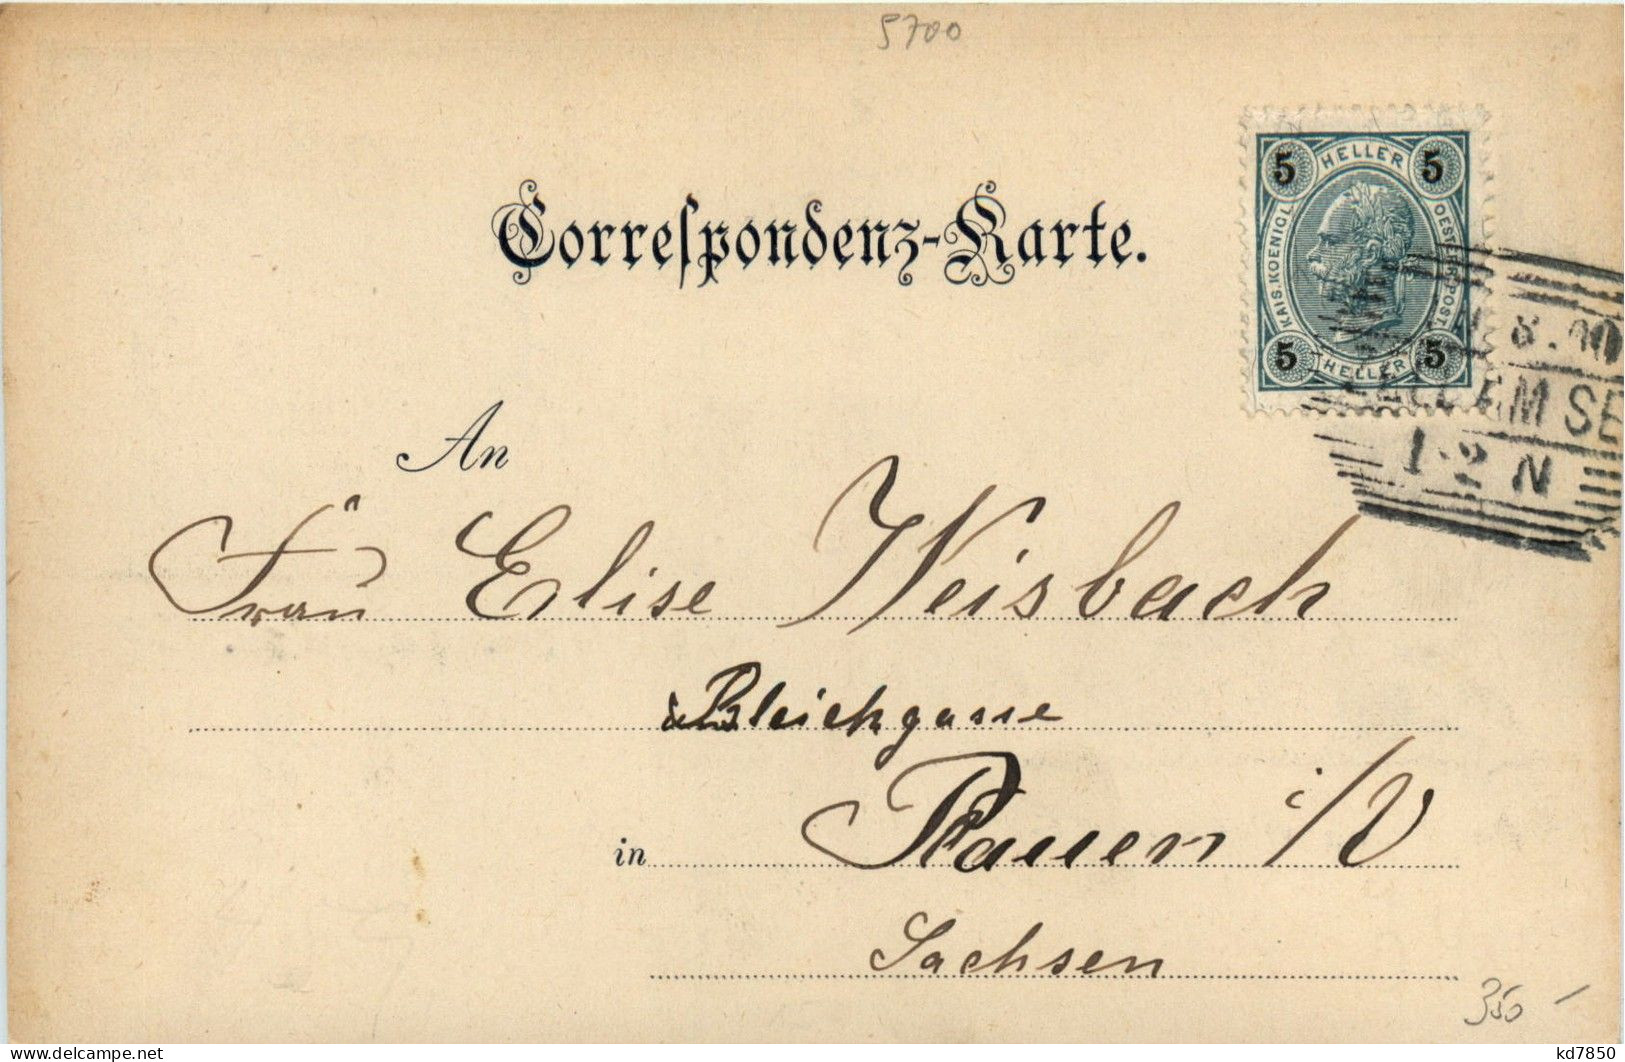 5700
Correspondenz-Karte.
5 HELLER 5
KAIS. KOENIGL. OESTERR. POST.
5 HELLER 5
8.00
EMSE
1-2 N
An
Frau Elise Weisbach
Bleichgasse
in Plauen i/V
Sachsen
350 -
delcampe.net
kd7850